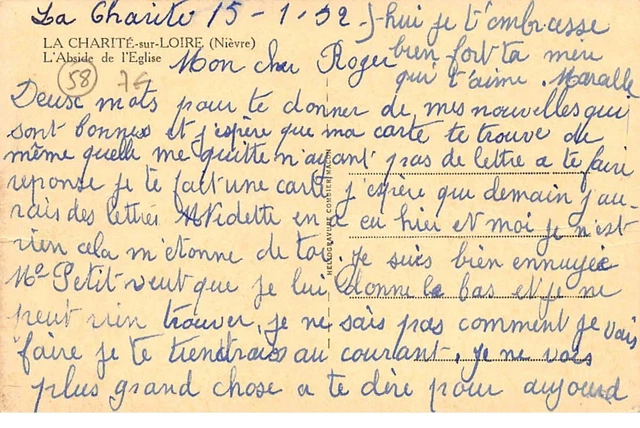 La Charité 15-1-52
LA CHARITÉ-sur-LOIRE (Nièvre)
L'Abside de l'Eglise
58
Mon cher Roger
Deux mots pour te donner de mes nouvelles qui
sont bonnes et j'espère que ma carte te trouve de
même quelle me quitte n'ayant pas de lettre a te faire
reponse je te fait une carte j'espère que demain j'au-
rais des lettres Vidette en a eu hier et moi je n'est
rien cela m'étonne de toi. je suis bien ennuyée
Me Petit veut que je lui donne le bas et je ne
peut rien trouver, je ne sais pas comment je vais
faire je te tiendrais au courant. je ne vois
plus grand chose a te dire pour aujourd
-hui je t'embrasse
bien fort ta
qui t'aime.
HELIOGRAVURE COMBIER MACON